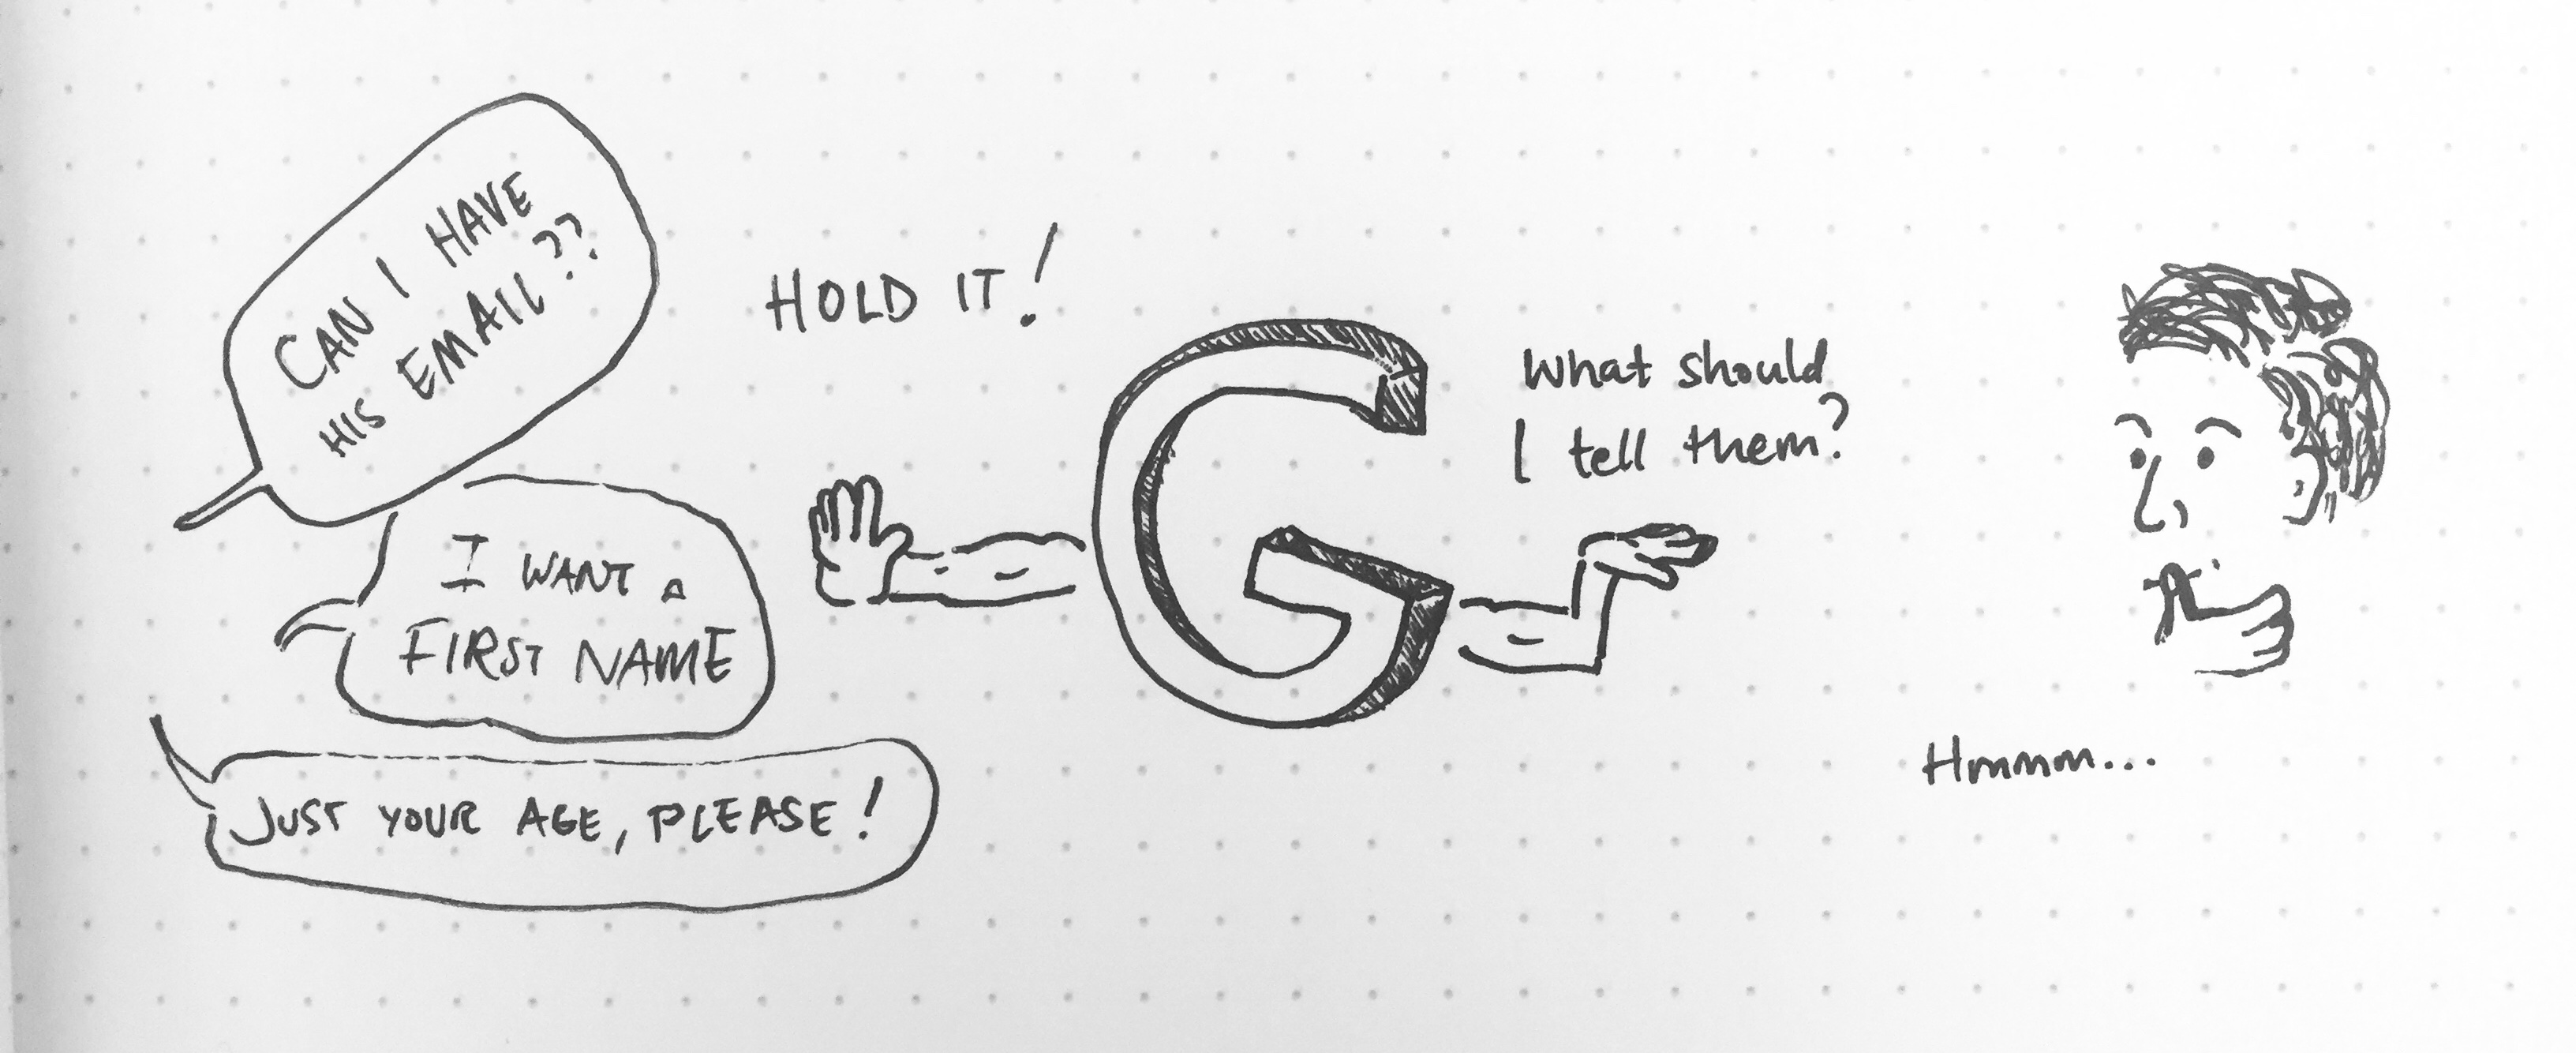 CAN I HAVE
HIS EMAIL??
I WANT A
FIRST NAME
JUST YOUR AGE, PLEASE!
HOLD IT!
G
What should
I tell them?
Hmmm...